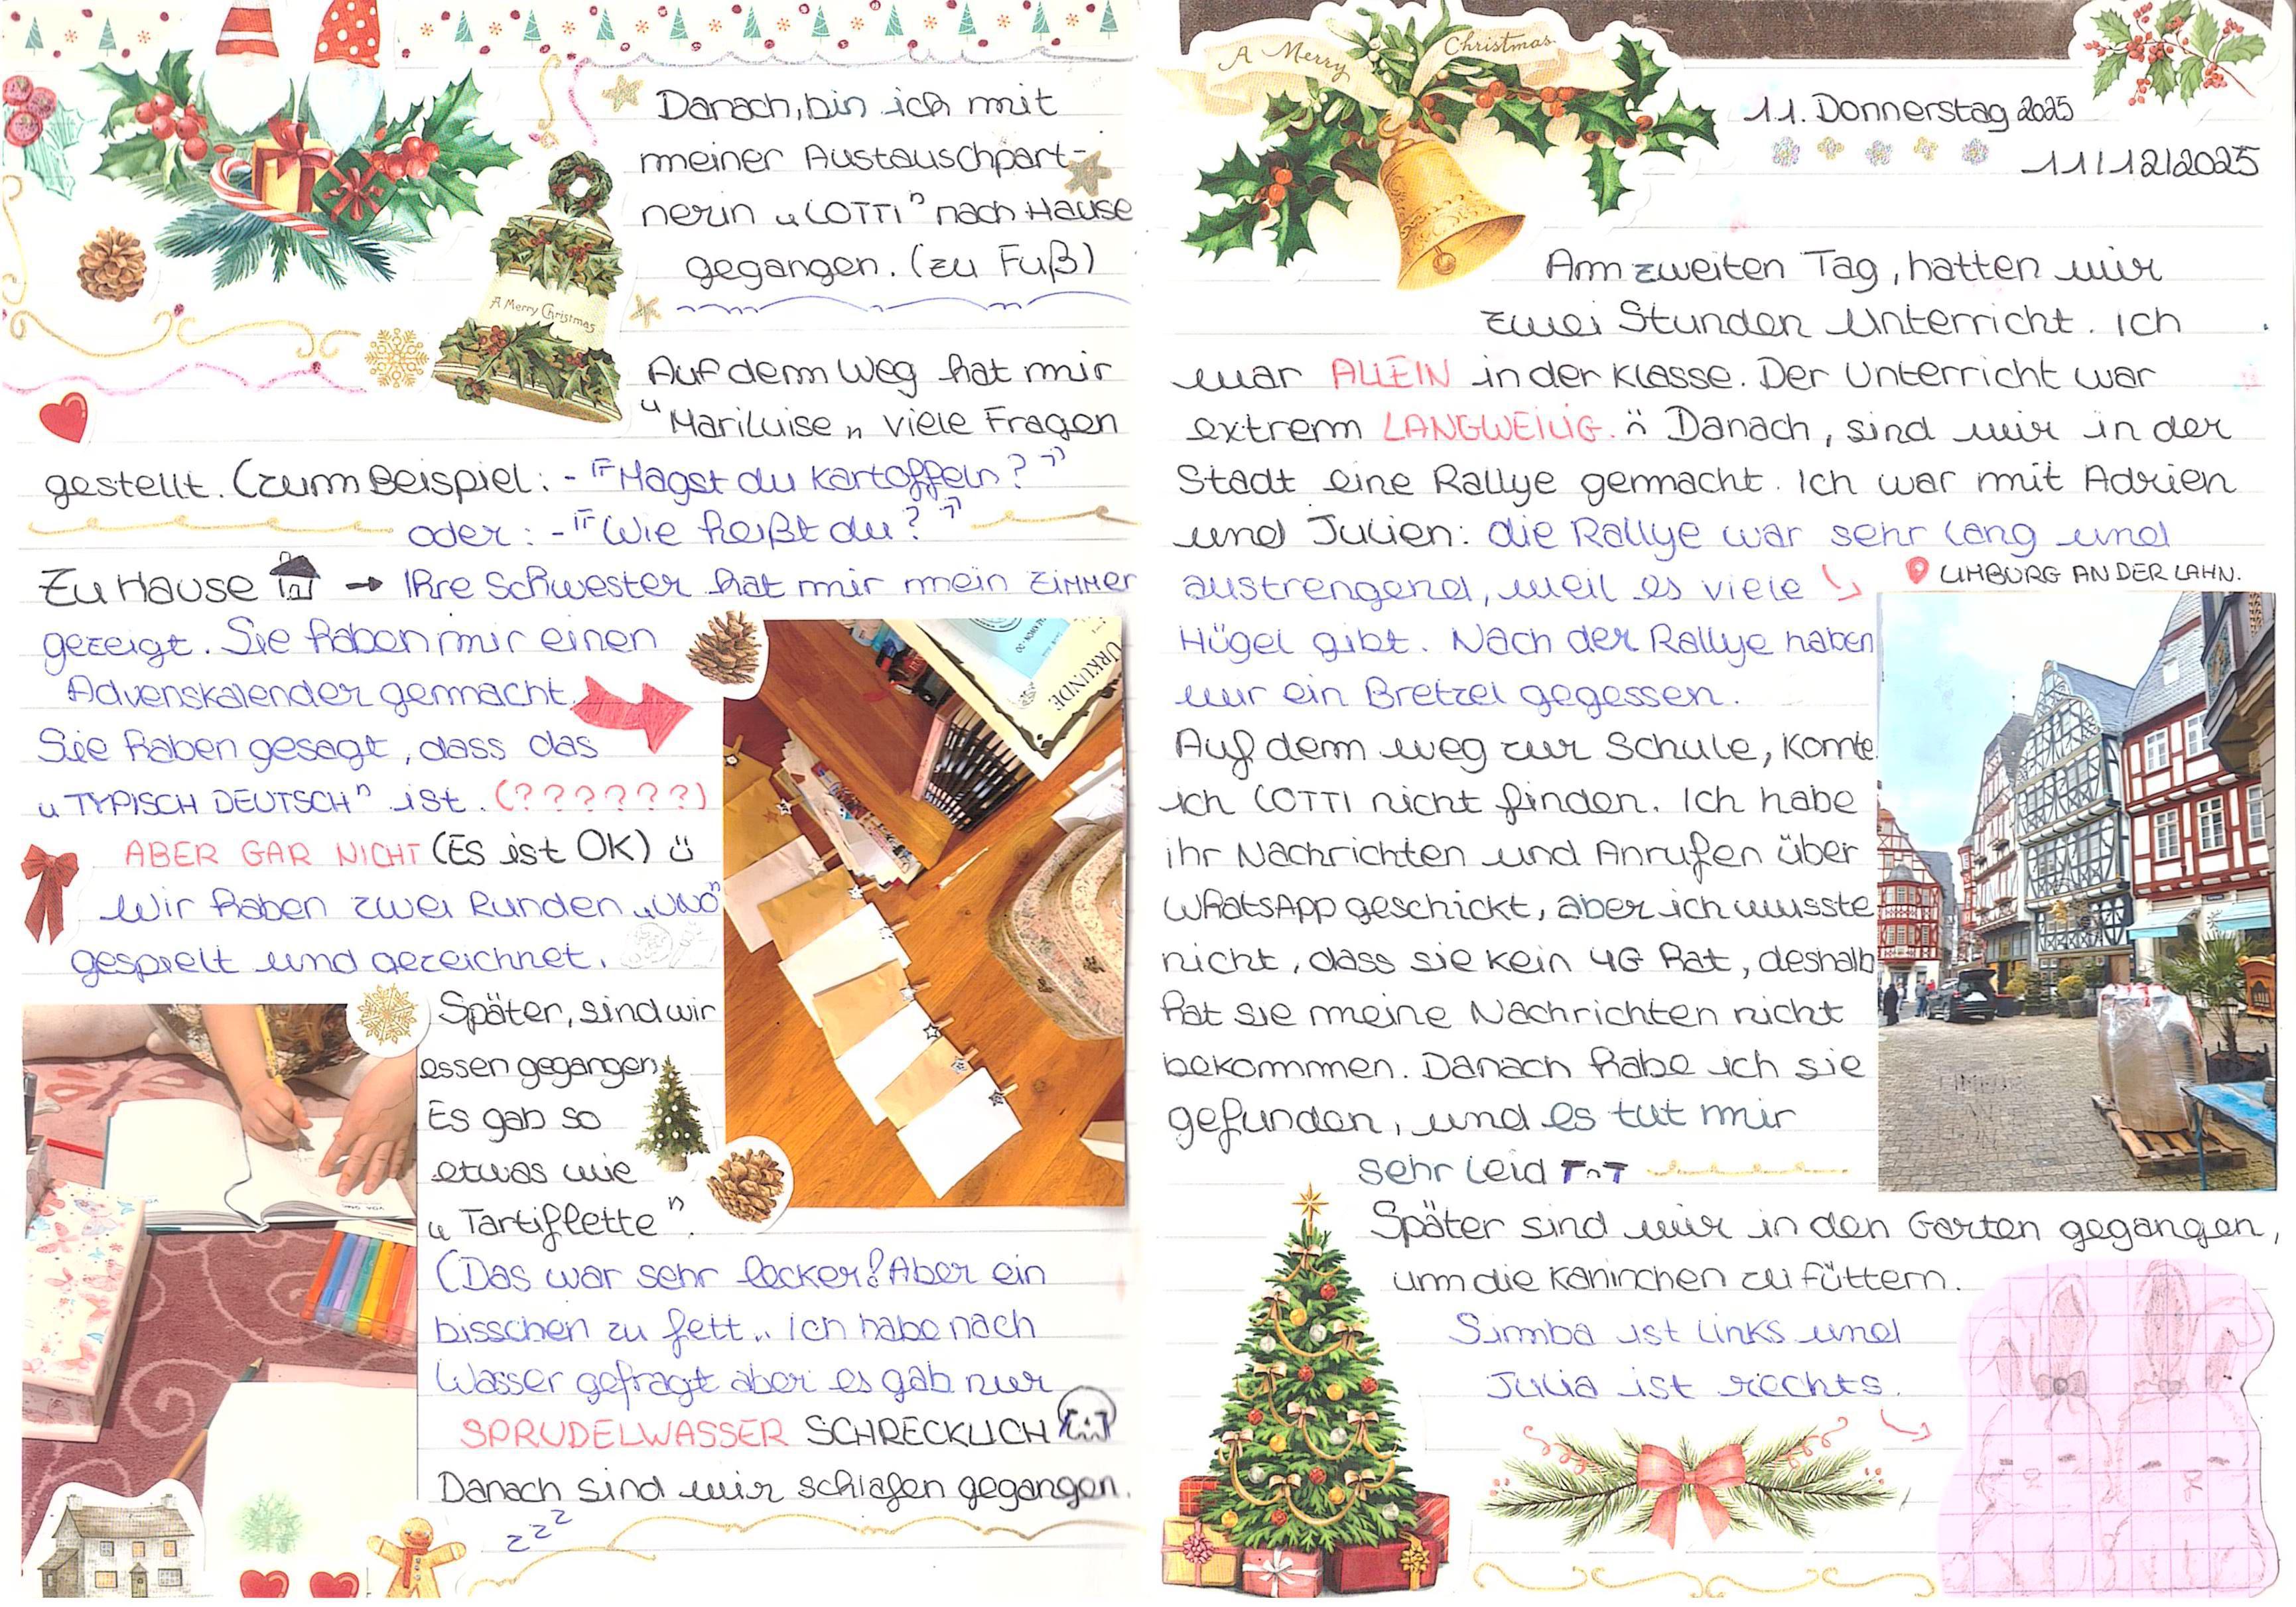 Danach, bin ich mit
meiner Austauschpart-
nerin „LOTTI" nach Hause
gegangen. (zu Fuß)
A Merry Christmas
Auf dem Weg hat mir
"Mariluise" viele Fragen
gestellt. (zum Beispiel: - "Magst du Kartoffeln?"
oder: - "Wie heißt du?"
Zu Hause → Ihre Schwester hat mir mein ZIMMER
gezeigt. Sie haben mir einen
Advenskalender gemacht.
Sie haben gesagt, dass das
„TYPISCH DEUTSCH" ist. (??????)
ABER GAR NICHT (ES ist OK) ü
Wir haben zwei Runden „UNO"
gespielt und gezeichnet.
URKUNDE
Später, sind wir
essen gegangen
Es gab so
etwas wie
„Tartiflette".
(Das war sehr lecker! Aber ein
bisschen zu fett.. ich habe nach
Wasser gefragt aber es gab nur
SPRUDELWASSER SCHRECKLICH
Danach sind wir schlafen gegangen.
z z z
A Merry Christmas
11. Donnerstag 2025
11/12/2025
Am zweiten Tag, hatten wir
zwei Stunden Unterricht. Ich
war ALLEIN in der Klasse. Der Unterricht war
extrem LANGWEILIG. Danach, sind wir in der
Stadt eine Rallye gemacht. Ich war mit Adrien
und Julien: die Rallye war sehr lang und
austrengend, weil es viele
LIMBURG AN DER LAHN.
Hügel gibt. Nach der Rallye haben
wir ein Bretzel gegessen.
Auf dem weg zur Schule, komte
ich LOTTI nicht finden. Ich habe
ihr Nachrichten und Anrufen über
WhatsApp geschickt, aber ich wusste
nicht, dass sie kein 4G hat, deshalb
hat sie meine Nachrichten nicht
bekommen. Danach habe ich sie
gefunden, und es tut mir
sehr leid T^T
Später sind wir in den Garten gegangen,
um die Kaninchen zu füttern.
Simba ist links und
Julia ist rechts.